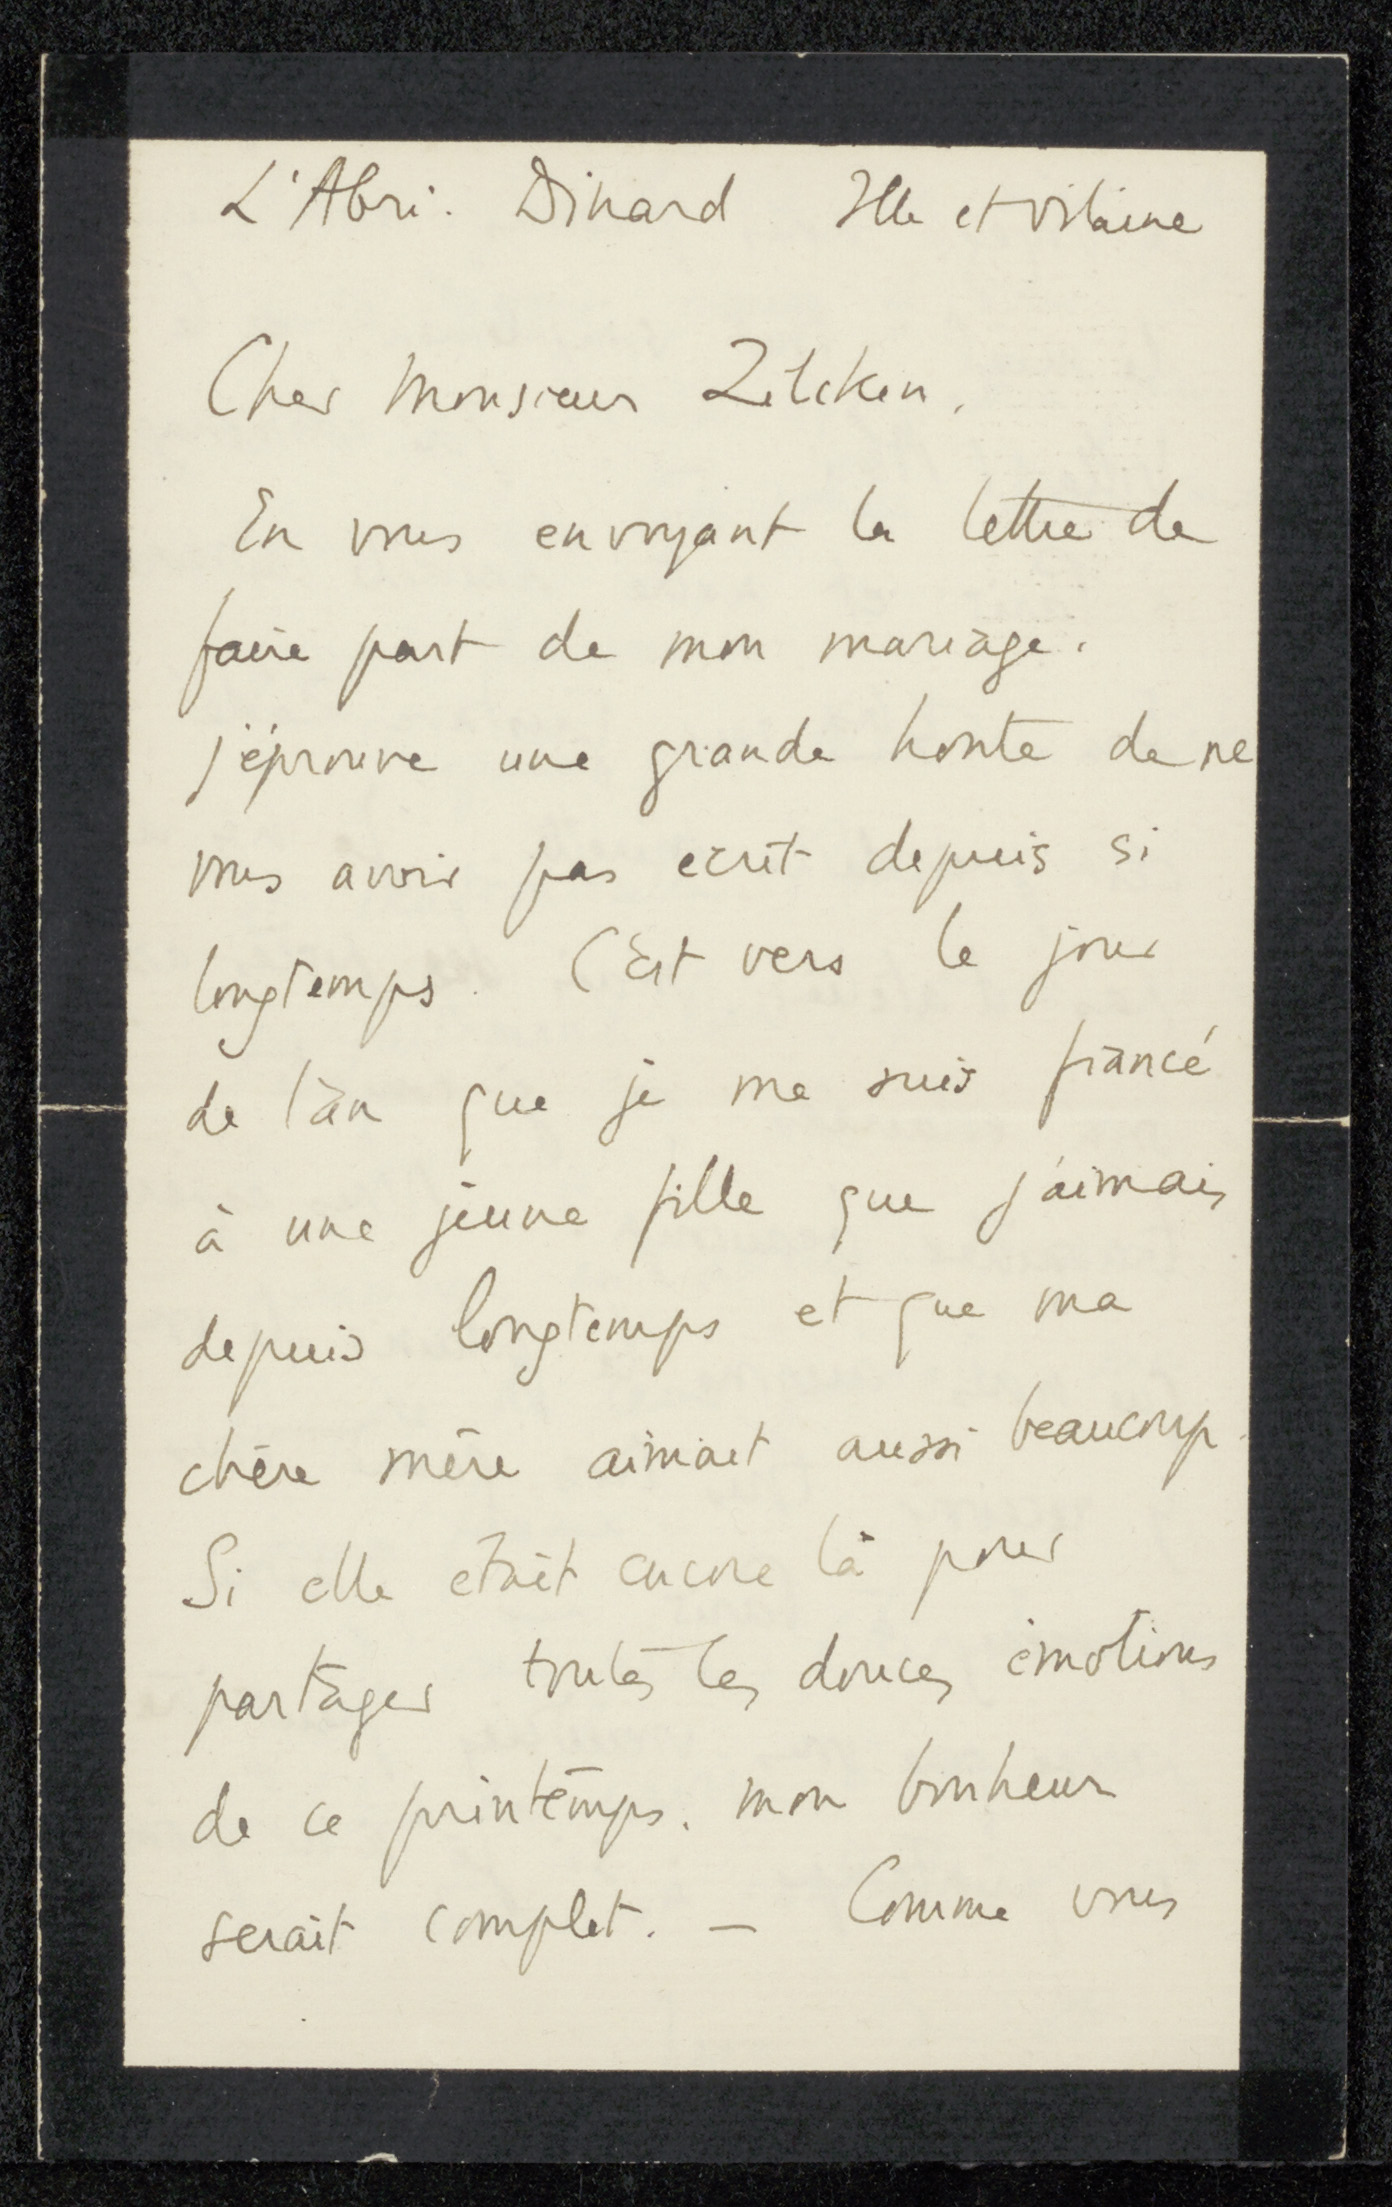 L'Abri. Dinard Ille et Vilaine
Cher Monsieur Zilcken.
En vous envoyant la lettre de
faire part de mon mariage.
j'éprouve une grande honte de ne
vous avoir pas ecrit depuis si
longtemps. C'est vers le jour
de l'an que je me suis fiancé
à une jeune fille que j'aimais
depuis longtemps et que ma
chère mère aimait aussi beaucoup.
Si elle etait encore là pour
partager toutes les douces émotions
de ce printemps. mon bonheur
serait complet. — Comme vous